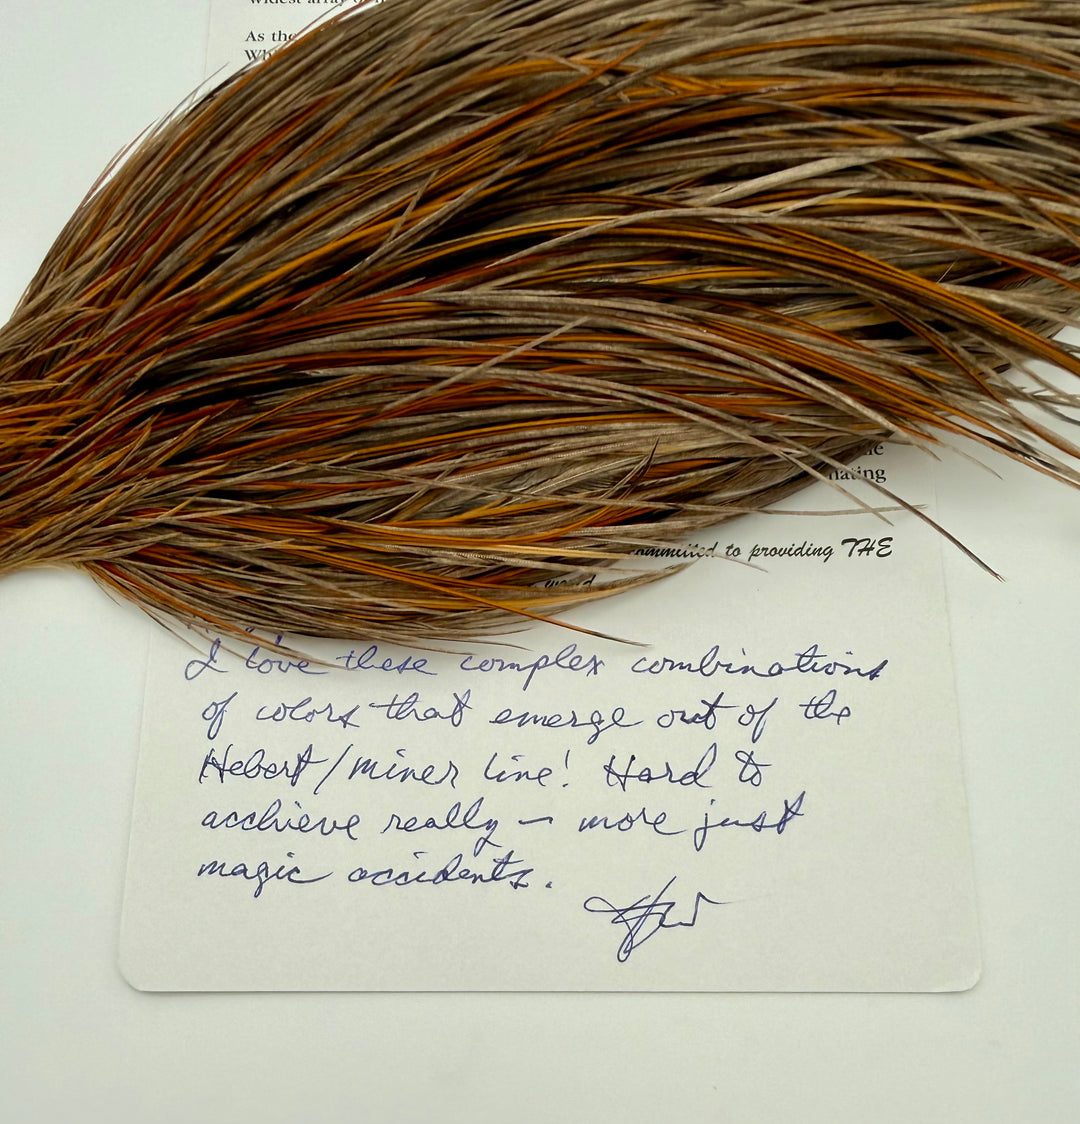 widest array of
As the
Wh
the
nating
committed to providing THE
world
I love these complex combinations
of colors that emerge out of the
Hebert/miner line! Hard to
acchieve really – more just
magic accidents.